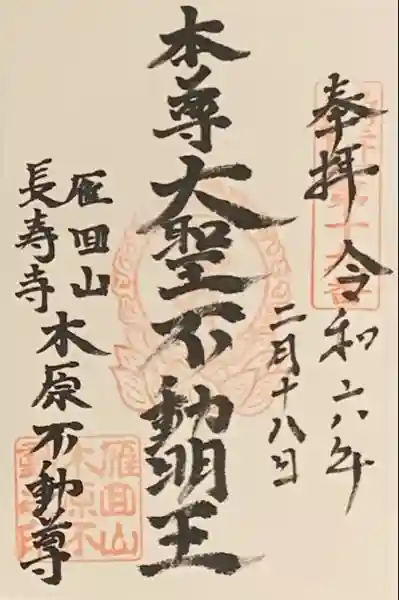 奉拝 令和六年
二月十八日
本尊大聖不動明王
雁回山
長寿寺 木原不動尊
雁回山
木原不